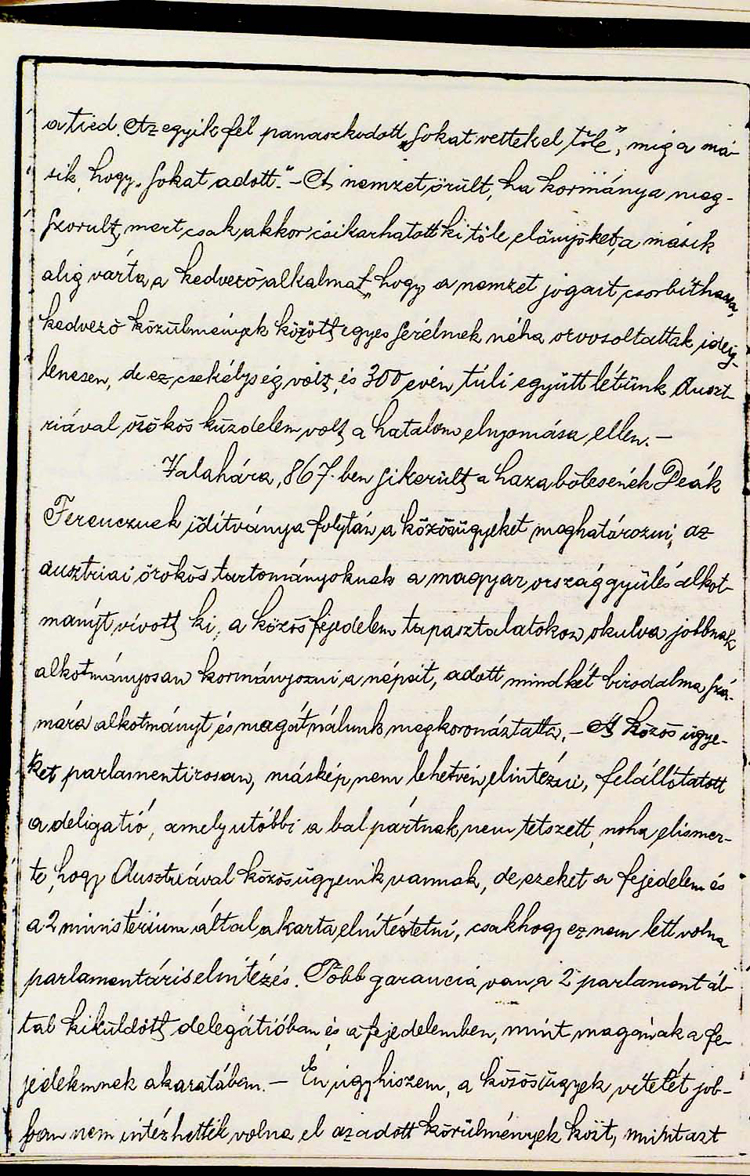 a tied. Az egyik fél panaszkodott „sokat vettek el tőle”, mig a má-
sik, hogy „sokat adott.” – A nemzet örült, ha kormánya meg-
szorult, mert csak akkor csikarhatott ki tőle előnyöket, a másik
alig várta a kedvező alkalmat, hogy a nemzet jogait csorbithassa,
kedvező közülmények között egyes sérelmek néha orvosoltattak ideig-
lenesen, de ez csekélység volt, és 300 éven túli együttlétünk Auszt-
riával örökös küzdelem volt a hatalom elnyomása ellen. –
Valahára, 867-ben sikerült a haza bölcsének Deák
Ferencznek inditványa folytán a közösügyeket meghatározni, az
austriai örökös tartományoknak a magyar országgyülés alkot-
mányt vivott ki, a közös fejedelem tapasztalatokon okulva jobbnak
alkotmányosan kormányozni a népeit, adott mindkét birodalma szá-
mára alkotmányt és magát nálunk megkoronáztatta. – A közös ügye-
ket parlamentirosan, máskép nem lehetvén elintézni, felállitatott
a deligatió, amely utóbbi a bal pártnak nem tetszett, noha elismer-
te, hogy Austriával közös ügyeink vannak, de ezeket a fejedelem és
a 2 ministérium által akarta elintéztetni, csakhogy ez nem lett volna
parlamentáris elintézés. Több garancia van a 2 parlament ál-
tal kiküldött delegátióban és a fejedelemben, mint magának a fe-
jedelemnek akaratában. – Én úgy hiszem, a közös ügyek vitelét job-
ban nem intézhették volna el az adott körülmények közt, mint azt